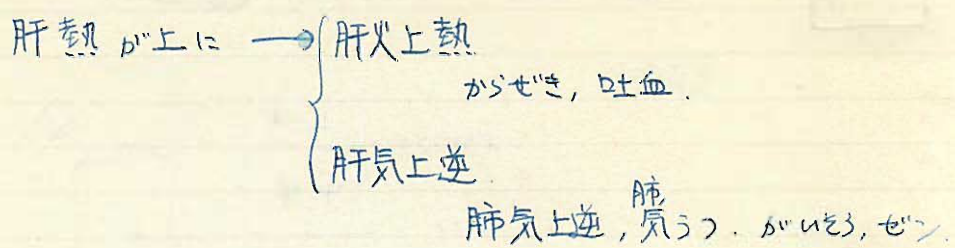 肝熱が上に → 肝火上熱
からぜき, 吐血.
肝気上逆
肺気上逆, 肺気うつ. がいそう, ぜン.